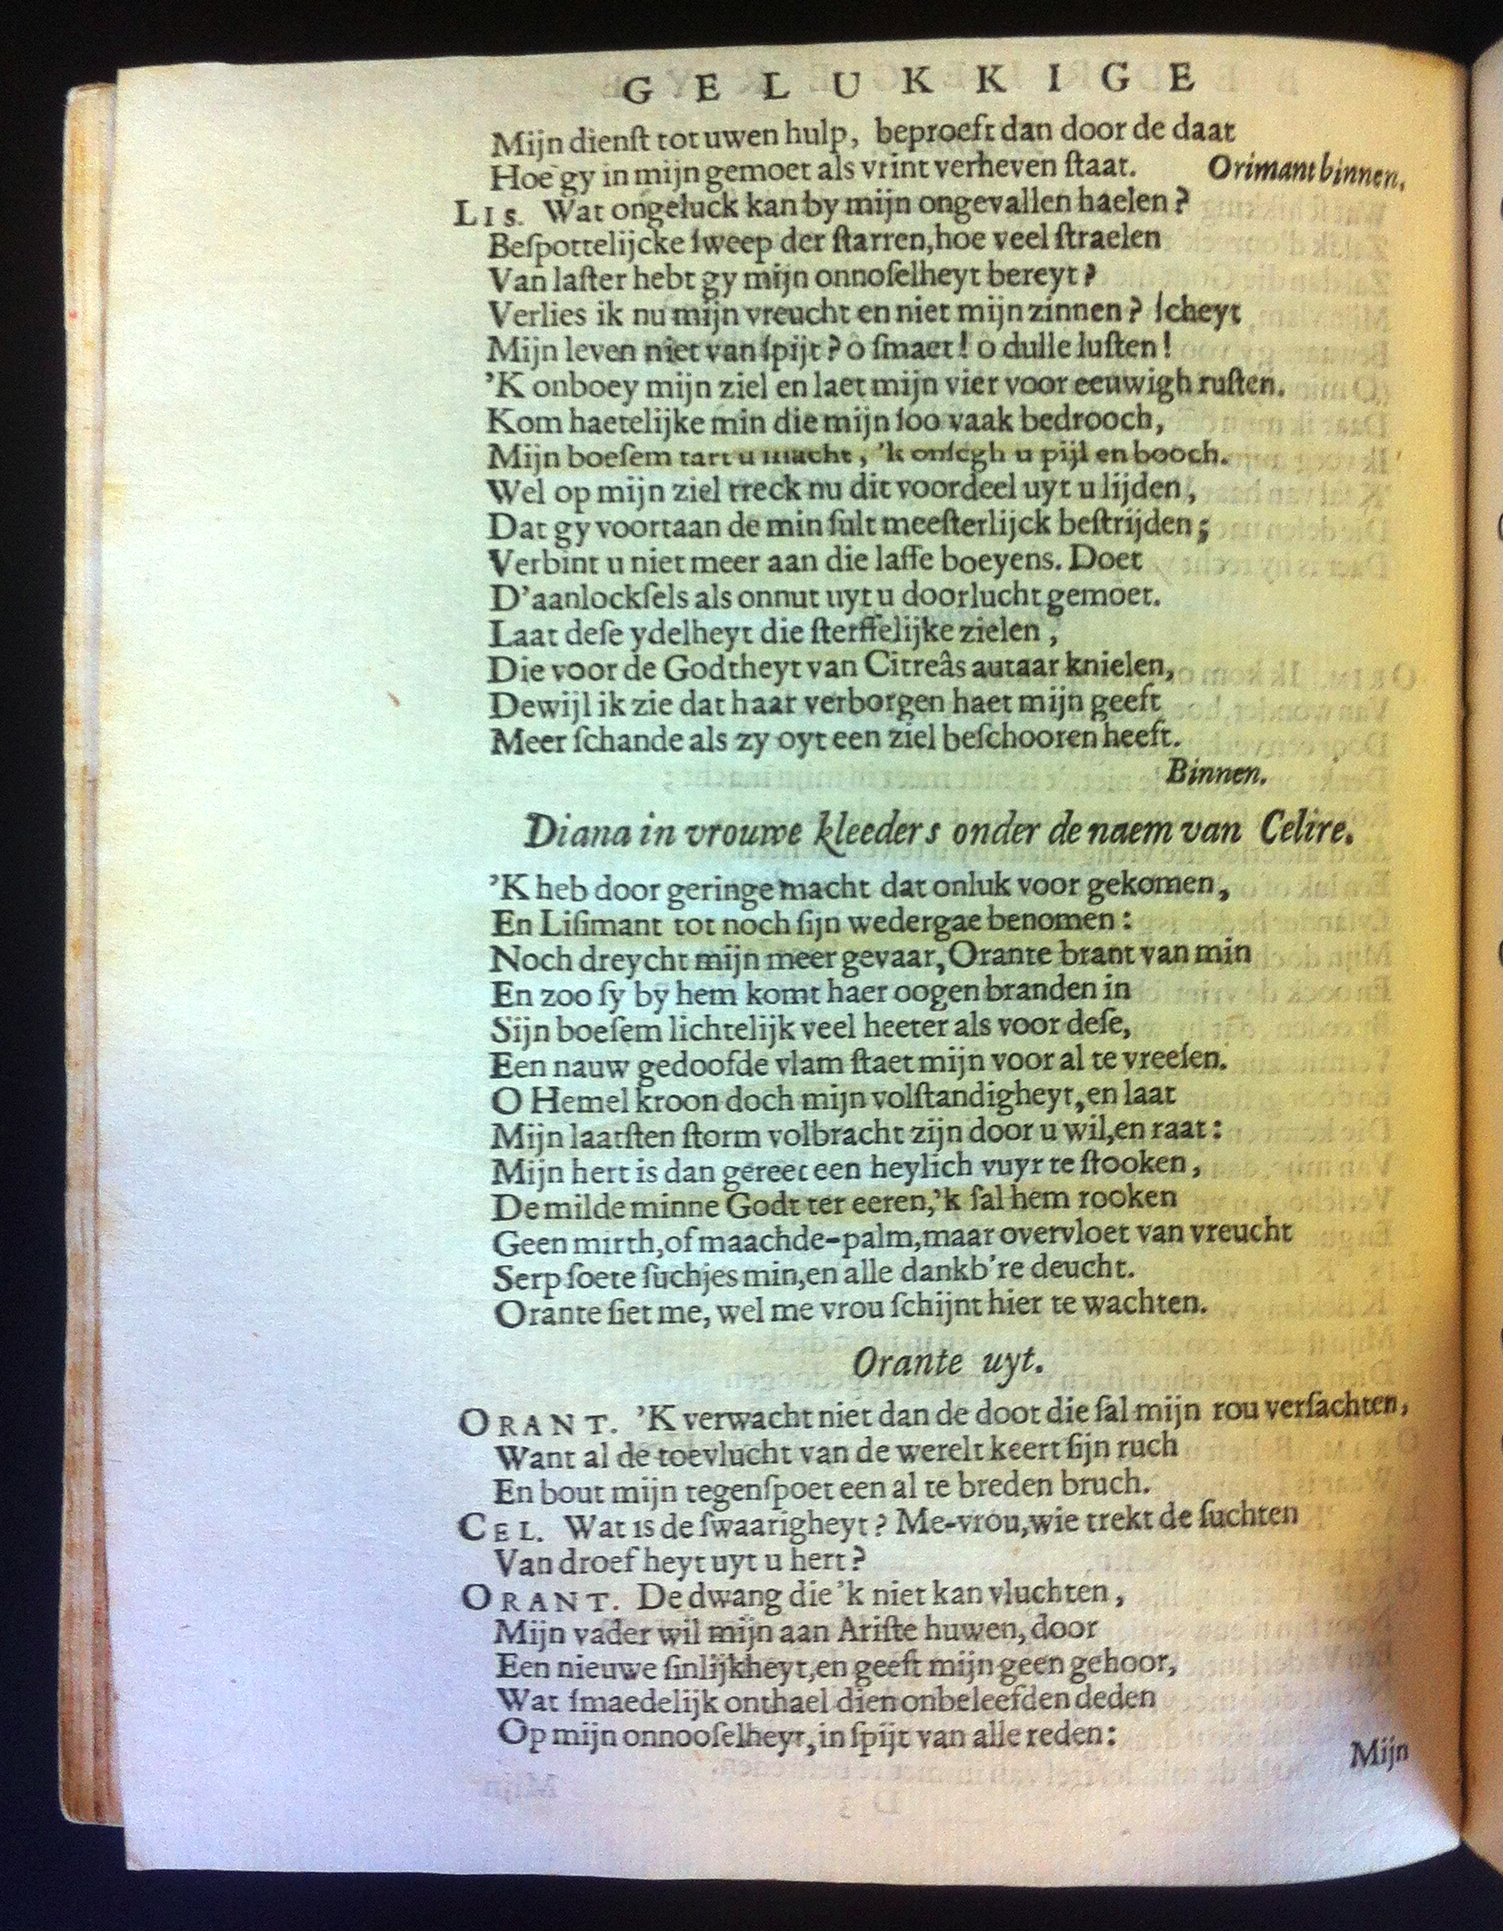 GELUKKIGE
Mijn dienſt tot uwen hulp, beproeft dan door de daat
Hoe gy in mijn gemoet als vrint verheven ſtaat. Orimant binnen.
LIS. Wat ongeluck kan by mijn ongevallen haelen?
Beſpottelijcke ſweep der ſtarren, hoe veel ſtraelen
Van laſter hebt gy mijn onnoſelheyt bereyt?
Verlies ik nu mijn vreucht en niet mijn zinnen? ſcheyt
Mijn leven niet van ſpijt? o ſmaet! o dulle luſten!
'K onboey mijn ziel en laet mijn vier voor eeuwigh ruſten.
Kom haetelijke min die mijn ſoo vaak bedrooch,
Mijn boeſem tart u macht, 'k onſegh u pijl en booch.
Wel op mijn ziel treck nu dit voordeel uyt u lijden,
Dat gy voortaan de min ſult meeſterlijck beſtrijden;
Verbint u niet meer aan die laffe boeyens. Doet
D'aanlockſels als onnut uyt u doorlucht gemoet.
Laat deſe ydelheyt die ſterffelijke zielen,
Die voor de Godtheyt van Citreâs autaar knielen,
Dewijl ik zie dat haar verborgen haet mijn geeft
Meer ſchande als zy oyt een ziel beſchooren heeft.
Binnen.
Diana in vrouwe kleeders onder de naem van Celire.
'K heb door geringe macht dat onluk voor gekomen,
En Liſimant tot noch ſijn wedergae benomen:
Noch dreycht mijn meer gevaar, Orante brant van min
En zoo ſy by hem komt haer oogen branden in
Sijn boeſem lichtelijk veel heeter als voor deſe,
Een nauw gedoofde vlam ſtaet mijn voor al te vreeſen.
O Hemel kroon doch mijn volſtandigheyt, en laat
Mijn laatſten ſtorm volbracht zijn door u wil, en raat:
Mijn hert is dan gereet een heylich vuyr te ſtooken,
De milde minne Godt ter eeren, 'k ſal hem rooken
Geen mirth, of maachde-palm, maar overvloet van vreucht
Serp ſoete ſuchjes min, en alle dankb're deucht.
Orante ſiet me, wel me vrou ſchijnt hier te wachten.
Orante uyt.
ORANT. 'K verwacht niet dan de doot die ſal mijn rou verſachten,
Want al de toevlucht van de werelt keert ſijn ruch
En bout mijn tegenſpoet een al te breden bruch.
CEL. Wat is de ſwaarigheyt? Me-vrou, wie trekt de ſuchten
Van droefheyt uyt u hert?
ORANT. De dwang die 'k niet kan vluchten,
Mijn vader wil mijn aan Ariſte huwen, door
Een nieuwe ſinlijkheyt, en geeft mijn geen gehoor,
Wat ſmaedelijk onthael dien onbeleefden deden
Op mijn onnooſelheyt, in ſpijt van alle reden:
Mijn